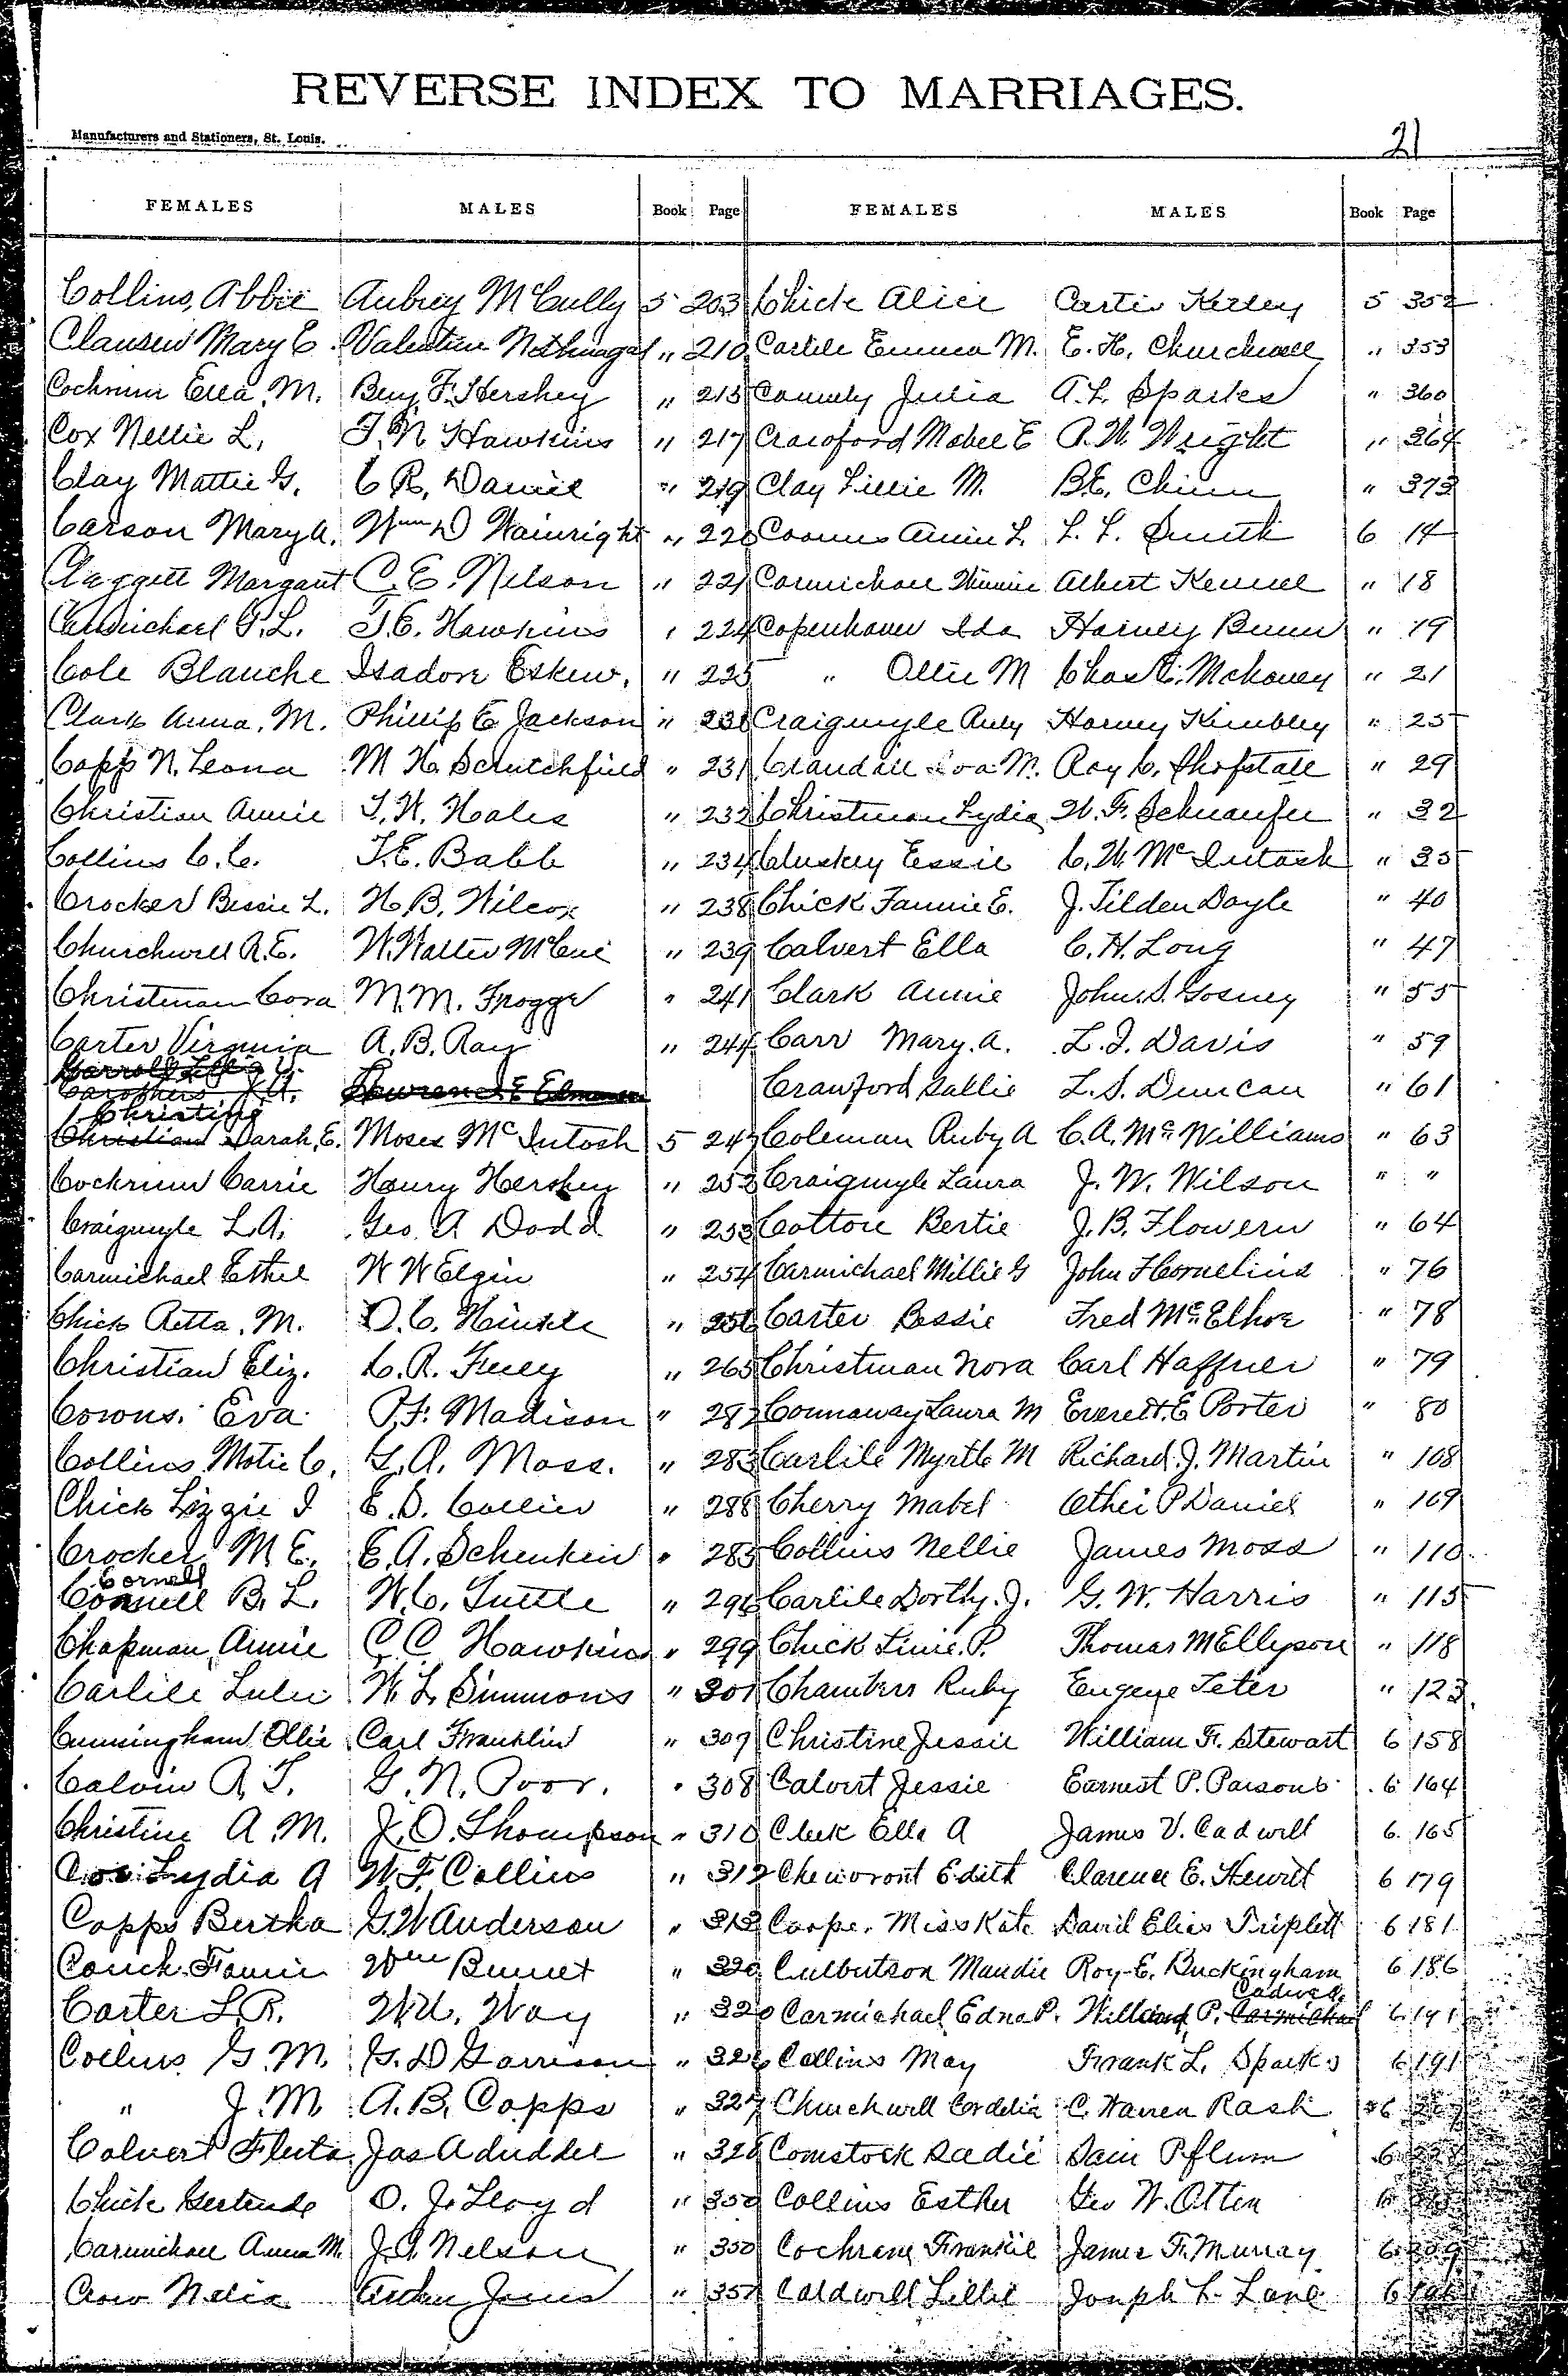 REVERSE INDEX TO MARRIAGES.
Manufacturers and Stationers, St. Louis.
21
FEMALES MALES Book Page FEMALES MALES Book Page
Collins, Abbie Aubrey McCully 5 203 Chick Alice Carter Kelley 5 352
Clausen Mary E. Valentine " 210 Carlile Emma M. E. H. Churchwell " 353
Ella M. Benj F. Hershey " 215 Julia A. L. Sparks " 360
Cox Nellie L. T. N Hawkins " 217 Crawford Mabel E Wright " 364
Clay Mattie G. C R. Daniel " 219 Clay Lillie M. B.E. Chinn " 373
Carson Mary A. Wm D Wainright " 220 Annie L. L. L. Smith 6 14
Claggett Margaret C. E. Nelson " 221 Carmichael Winnie Albert Kennel " 18
Carmichael G. L. T. E. Hawkins " 224 Copenhaver Ida Harvey " 19
Cole Blanche Isadore Eskew. " 225 " Ollie M Chas " 21
Clark Anna, M. Phillip E Jackson " 231 Craigmyle Ruby Harvey Kimbley " 25
Capp N. Leona M H. Scrutchfield " 231 Crandall Iva M. Roy C. Shofstall " 29
Christian Annie T. W. Hales " 232 Christman Lydia W. F. " 32
Collins C. C. T. E. Babb " 234 Cluskey Essie C. W. McIntosh " 35
Crocker Bessie L. H. B. Wilcox " 238 Chick Fannie E. J. Tilden Doyle " 40
Churchwell A. E. W. Walter McCue " 239 Calvert Ella C. H. Long " 47
Christman Cora M. M. Frogge " 241 Clark Annie John S. Gosney " 55
Carter Virginia A. B. Ray " 244 Carr Mary. A. L. I. Davis " 59
Crawford Sallie L. S. Duncan " 61
Christine
Christian Sarah, E. Moses McIntosh 5 247 Coleman Ruby A C. A. McWilliams " 63
Cockrum Carrie Henry Hershey " 252 Craigmyle Laura J. W. Wilson " "
Craigmyle L. A. Geo. A Dodd " 253 Cotton Bertie J. B. Floweree " 64
Carmichael Ethel W W Elgin " 254 Carmichael Millie G John F Cornelius " 76
Chick Retta. M. D. C. Hinkle " 256 Carter Bessie Fred McElhoe " 78
Christian Eliz. " 265 Christman Nora Carl Haffner " 79
Cowns. Eva P. F. Madison " 282 Connaway Laura M Everett. E Porter " 80
Collins Motie C. G. A. Moss. " 283 Carlile Myrtle M Richard. J. Martin " 108
Chick Lizzie I E. D. Collier " 288 Cherry Mabel Othei P Daniel " 109
Crocker M E. E. A. Schenkein " 285 Collins Nellie James Moss " 110
Cornell
Connell B. L. W. C. Tuttle " 296 Carlile Dorthy. J. G. W. Harris " 115
Chapman, Annie C C. Hawkins " 299 Chick P. Thomas M Ellyson " 118
Carlile Lulu W. L. Simmons " 301 Chambers Ruby Eugene Teter " 123
Cunningham Ollie Carl Franklin " 307 Christine Jessie William F. Stewart 6 158
Calvin A. T. G. N. Poor. " 308 Calvert Jessie Earnest P. Parsons 6 164
Christine A. M. J. O. Thompson " 310 Cleek Ella A James V. Cadwell 6 165
Cox Lydia A W. F. Collins " 312 Edith Clarence E. Hewitt 6 179
Capps Bertha G. W Anderson " 313 Cooper Miss Kate David Elies Triplett 6 181
Couch Fannie Wm " 320 Culbertson Maudie Roy E. Buckingham 6 186
Cadwell
Carter L. R. Way " 320 Carmichael Edna P. William P. Carmichael 6 191
Collins G. M. G. D Garrison " 326 Collins May Frank L. Sparks 6 191
" J. M. A. B. Capps " 327 Churchwell Cordelia C. Warren Rash 6
Calvert Fleeta Jas " 328 Comstock Sadie Sam Pflum 6
Chick Gertrude O. J. Lloyd " 350 Collins Esther Geo W. Otten 6
Carmichael Anna M. J. A. Nelson " 350 Cochrane Frankie James F. Murray 6
Crow Arthur Jones " 351 Caldwell Lillie Joseph L. Lane 6